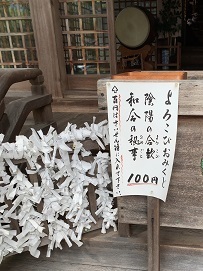 よろこびおみくじ
陰陽の合歓
和合の秘事
100円
百円はさいせん箱に入れて下さい。